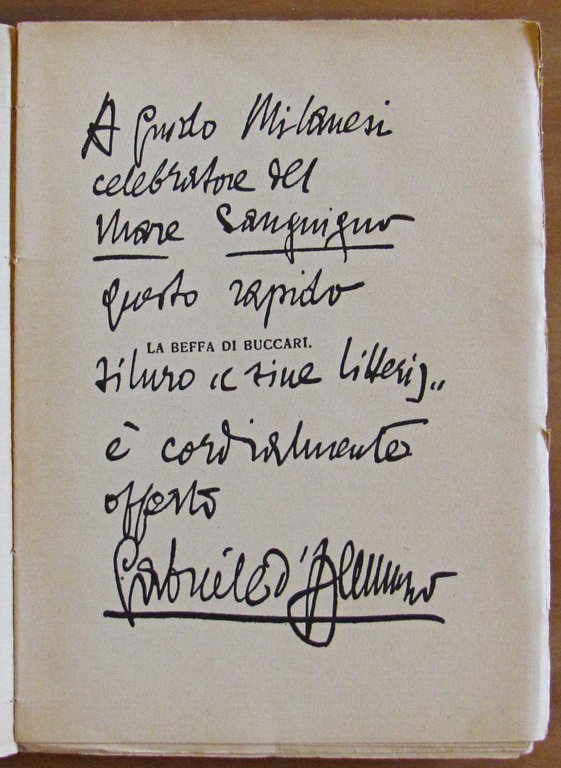 A Guido Milanesi
celebratore del
Mare Sanguigno
questo rapido
LA BEFFA DI BUCCARI.
siluro „ sine litteris „
è cordialmente
offerto
Gabriele d'Annunzio